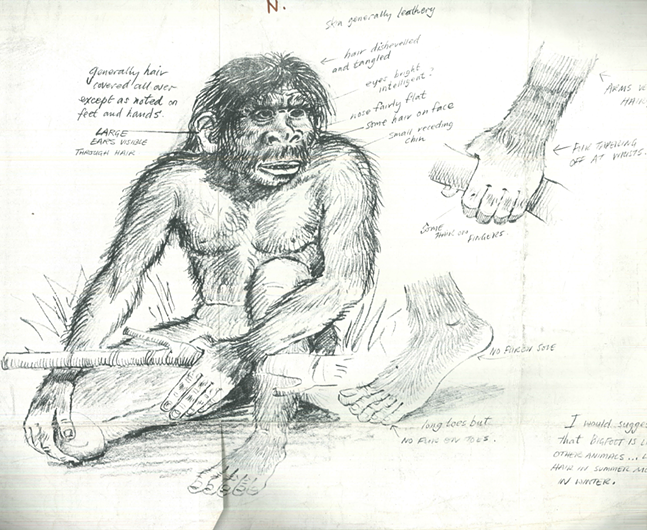 N.
Skin generally leathery
hair dishevelled
and tangled
eyes bright
intelligent?
nose fairly flat
some hair on face
small receding
chin
generally hair
covered all over
except as noted on
feet and hands.
LARGE
EARS VISIBLE
THROUGH HAIR
ARMS
HAIR
FUR
OFF AT WRISTS.
SOME
HAIR ON FINGERS.
NO FUR ON SOLE
long toes but
NO FUR ON TOES.
I would sugges
that BIGFOOT IS L
OTHER ANIMALS... L
HAIR IN SUMMER MO
IN WINTER.